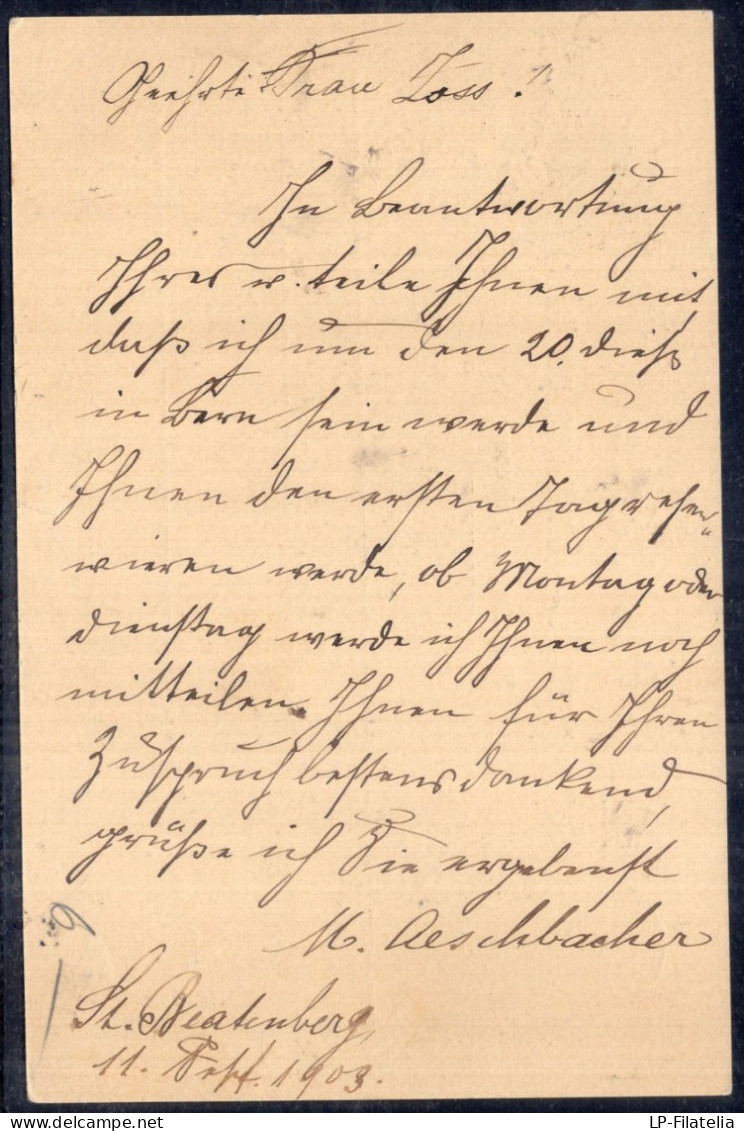 Geehrte Frau Zoss!
In Beantwortung
Ihres w. teile Ihnen mit,
daß ich um den 20. dieß
in Bern sein werde und
Ihnen den ersten Tag reser-
wieren werde, ob Montag oder
Dienstag werde ich Ihnen noch
mitteilen. Ihnen für Ihren
Zuspruch bestens dankend,
grüße ich Sie ergebenst
M. Aeschbacher
St. Beatenberg,
11. Sept. 1903.
6
LP-Filatelia